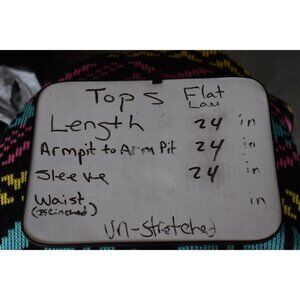 Tops Flat Lau
Length 24 in
Armpit to Arm Pit 24 in
Sleeve 24 in
Waist in
(If Cinched)
Un-Stretched